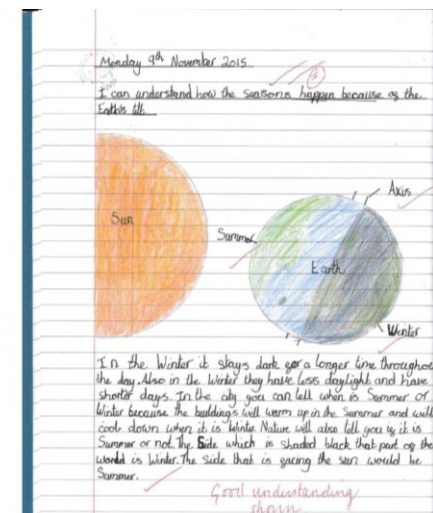 Monday 9th November 2015
I can understand how the seasons happen because of the
Earth's tilt
Axis
Sun
Summer
Earth
Winter
In the Winter it stays dark for a longer time throughout
the day. Also in the Winter they have less daylight and have
shorter days. In the city you can tell when is Summer or
Winter because the buildings will warm up in the Summer and will
cool down when it is Winte. Nature will also tell you if it is
Summer or not. The Side which is shaded black that part of the
world is Winter. The side that is facing the sun would be
Summer.
Good understanding
shown